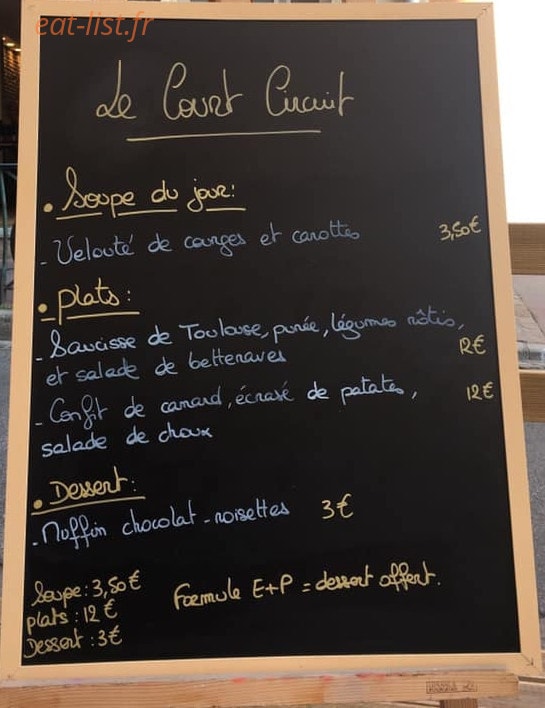 eat-list.fr
Le Court Circuit
• Soupe du jour:
- Velouté de courges et carottes 3,50€
• plats:
- Saucisse de Toulouse, purée, légumes rôtis,
et salade de betteraves 12€
- Confit de canard, écrasé de patates, 12€
salade de choux
• Dessert:
- Muffin chocolat-noisettes 3€
Soupe: 3,50€
plats: 12€
Dessert: 3€
Formule E+P = dessert offert.